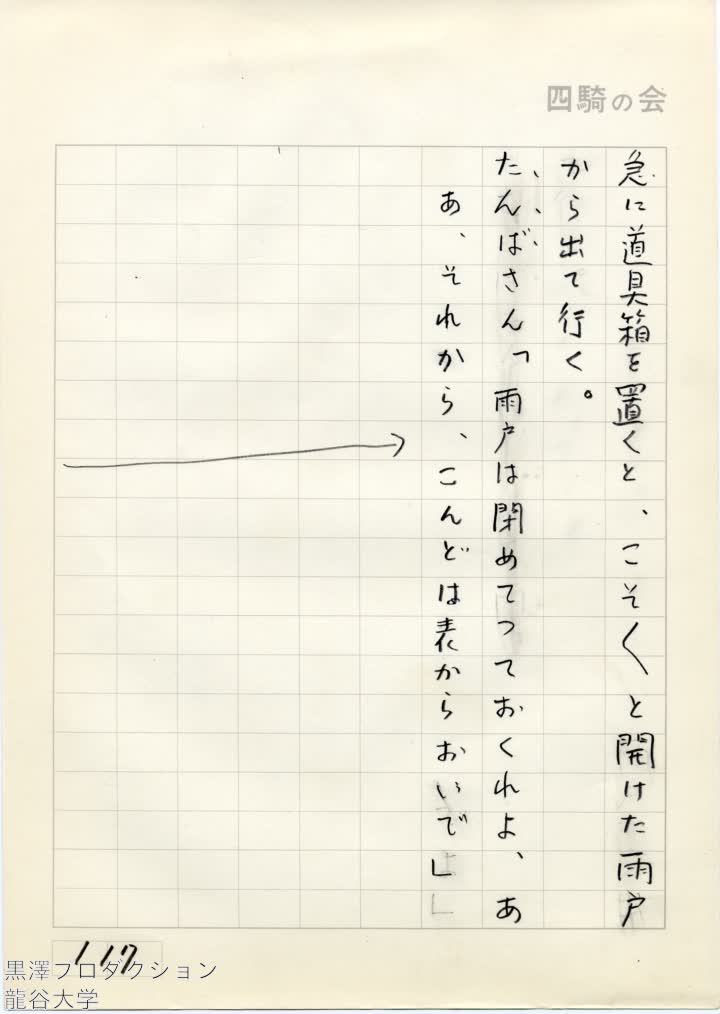 四騎の会
急に道具箱を置くと、こそ〱と開けた雨戸
から出て行く。
たんばさん「雨戸は閉めてつておくれよ、あ
あ、それから、こんどは表からおいで」
117
黒澤プロダクション
龍谷大学